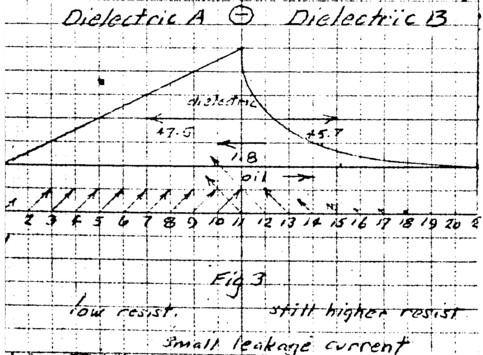 Dielectric A ⊖ Dielectric B
dielectric
47.5 45.7
1.8
oil
2 3 4 5 6 7 8 9 10 11 12 13 14 15 16 17 18 19 20
Fig 3
low resist. still higher resist
small leakage current